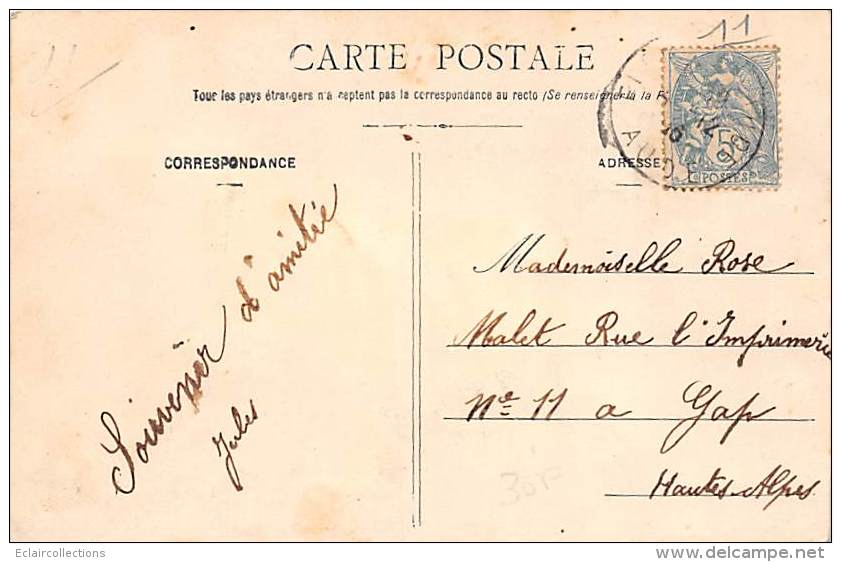 11
11
CARTE POSTALE
Tour les pays étrangers n'acceptent pas la correspondance au recto (Se renseigner à la P
CORRESPONDANCE
ADRESSE
5
POSTES
AUDE
Souvenir d'amitié
Jules
Mademoiselle Rose
Malet Rue l'Imprimerie
No 11 a Gap
Hautes-Alpes
30F
Eclaircollections
delcampe.net